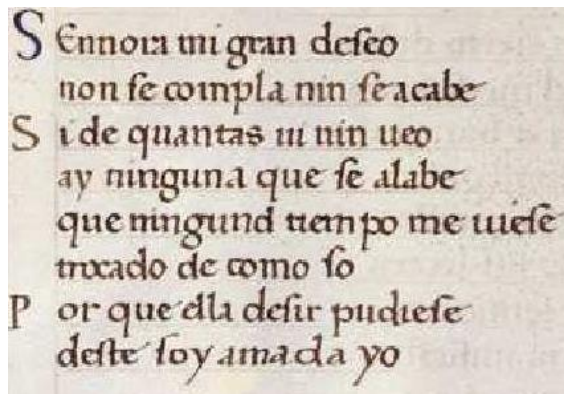 SEnnora mi gran deseo
non se compla nin se acabe
Si de quantas ui nin ueo
ay ninguna que se alabe
que ningund tiempo me uiese
trocado de como so
Por que dla desir pudiese
deste soy amada yo